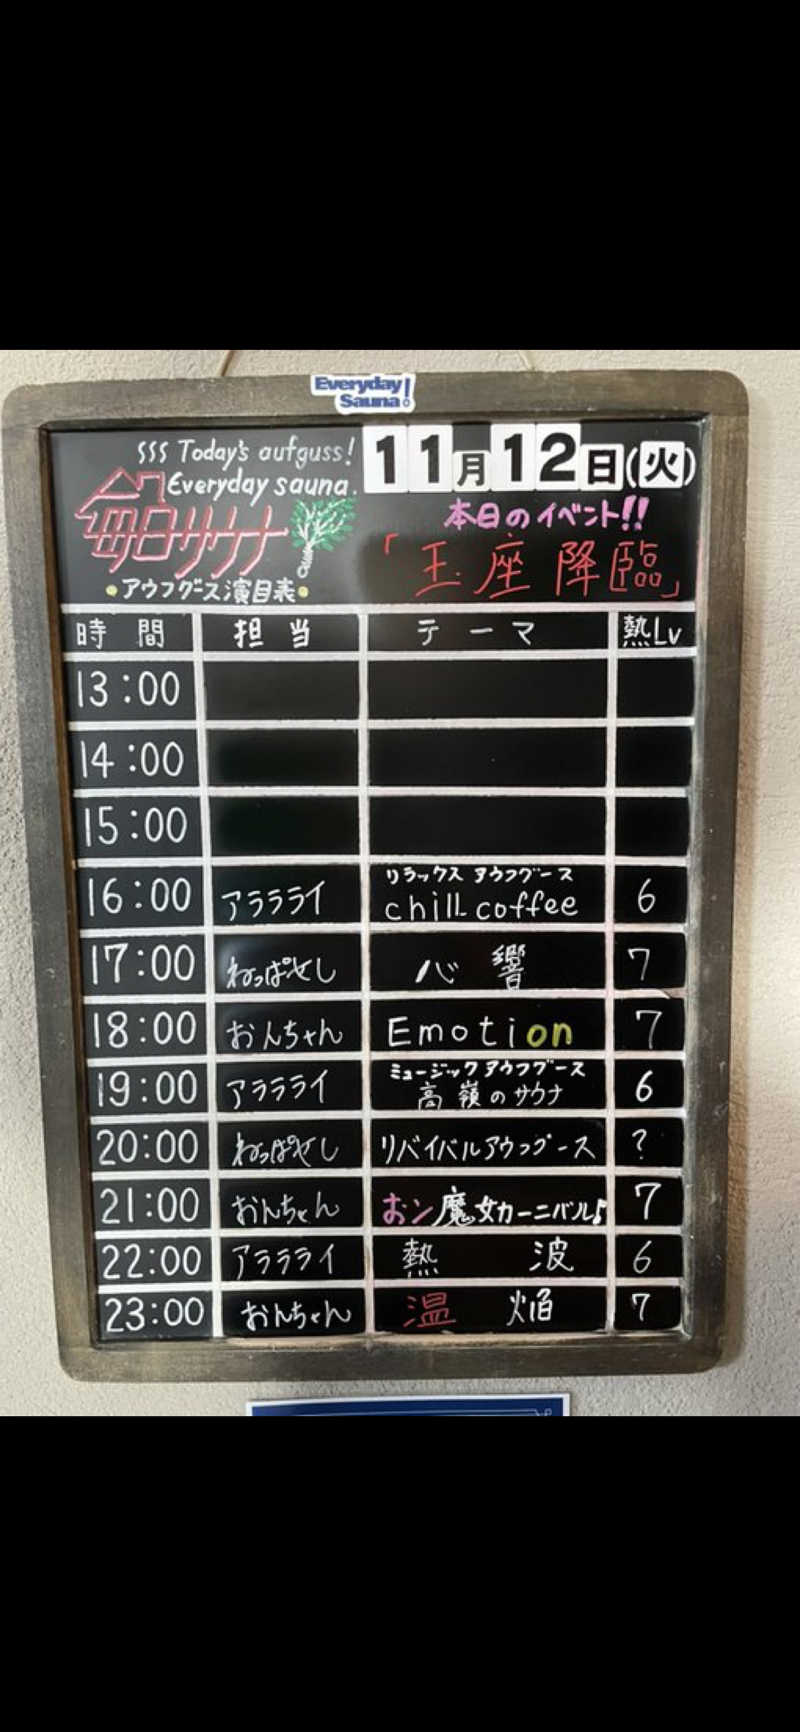 Everyday!
Sauna!
SSS Today's aufguss!
Everyday sauna.
毎日サウナ
・アウフグース演目表・
11月12日(火)
本日のイベント!!
「玉座降臨」
時間 担当 テーマ 熱Lv
13:00
14:00
15:00
16:00 アラララライ リラックス アウフグース chill coffee 6
17:00 ねっぱせし 心響 7
18:00 おんちゃん Emotion 7
19:00 アララライ ミュージックアウフグース 高嶺のサウナ 6
20:00 ねっぱせし リバイバルアウフグース ?
21:00 おんちゃん おン魔女カーニバル♪ 7
22:00 アララライ 熱波 6
23:00 おんちゃん 温焔 7